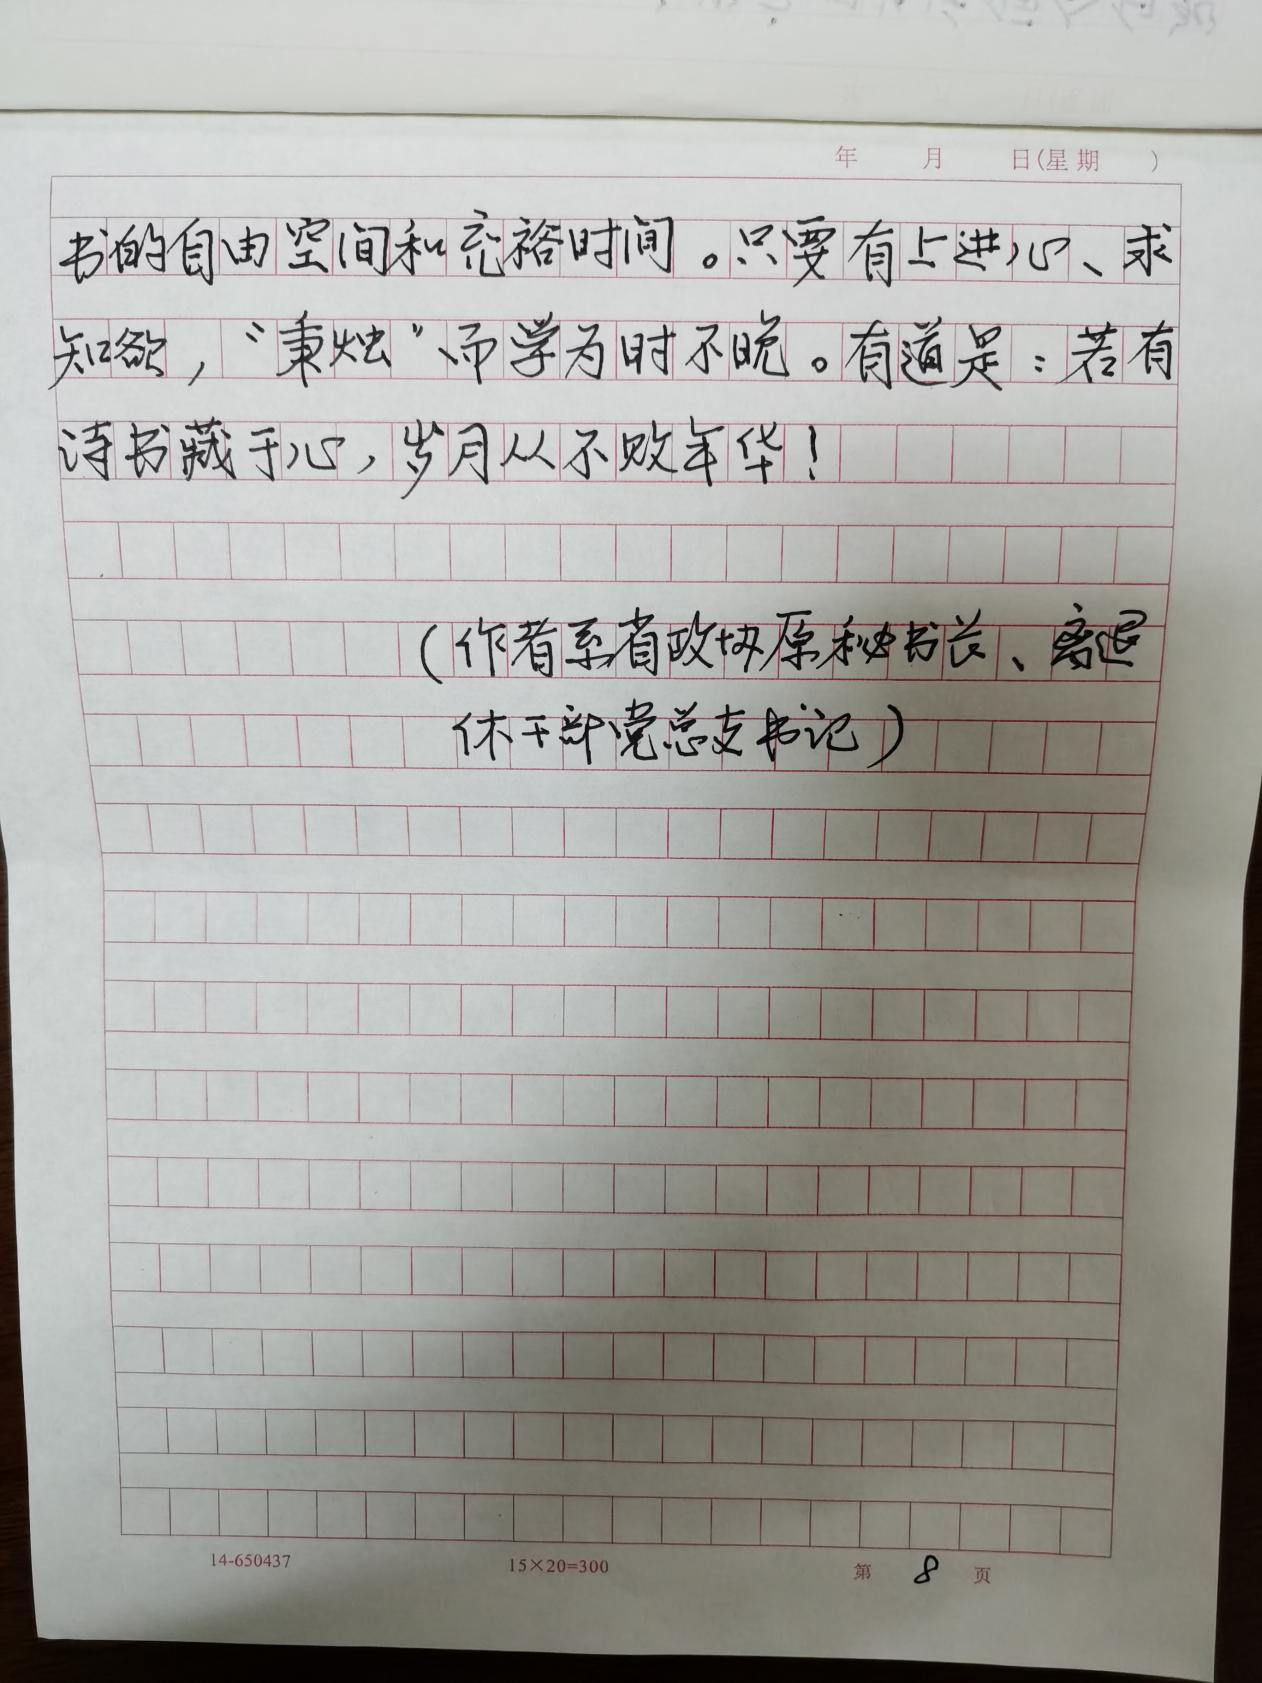 年 月 日(星期 )
书的自由空间和充裕时间。只要有上进心、求
知欲，“秉烛”而学为时不晚。有道是：若有
诗书藏于心，岁月从不败年华！
(作者系省政协原秘书长、离退
休干部党总支书记)
14-650437 15×20=300 第 8 页